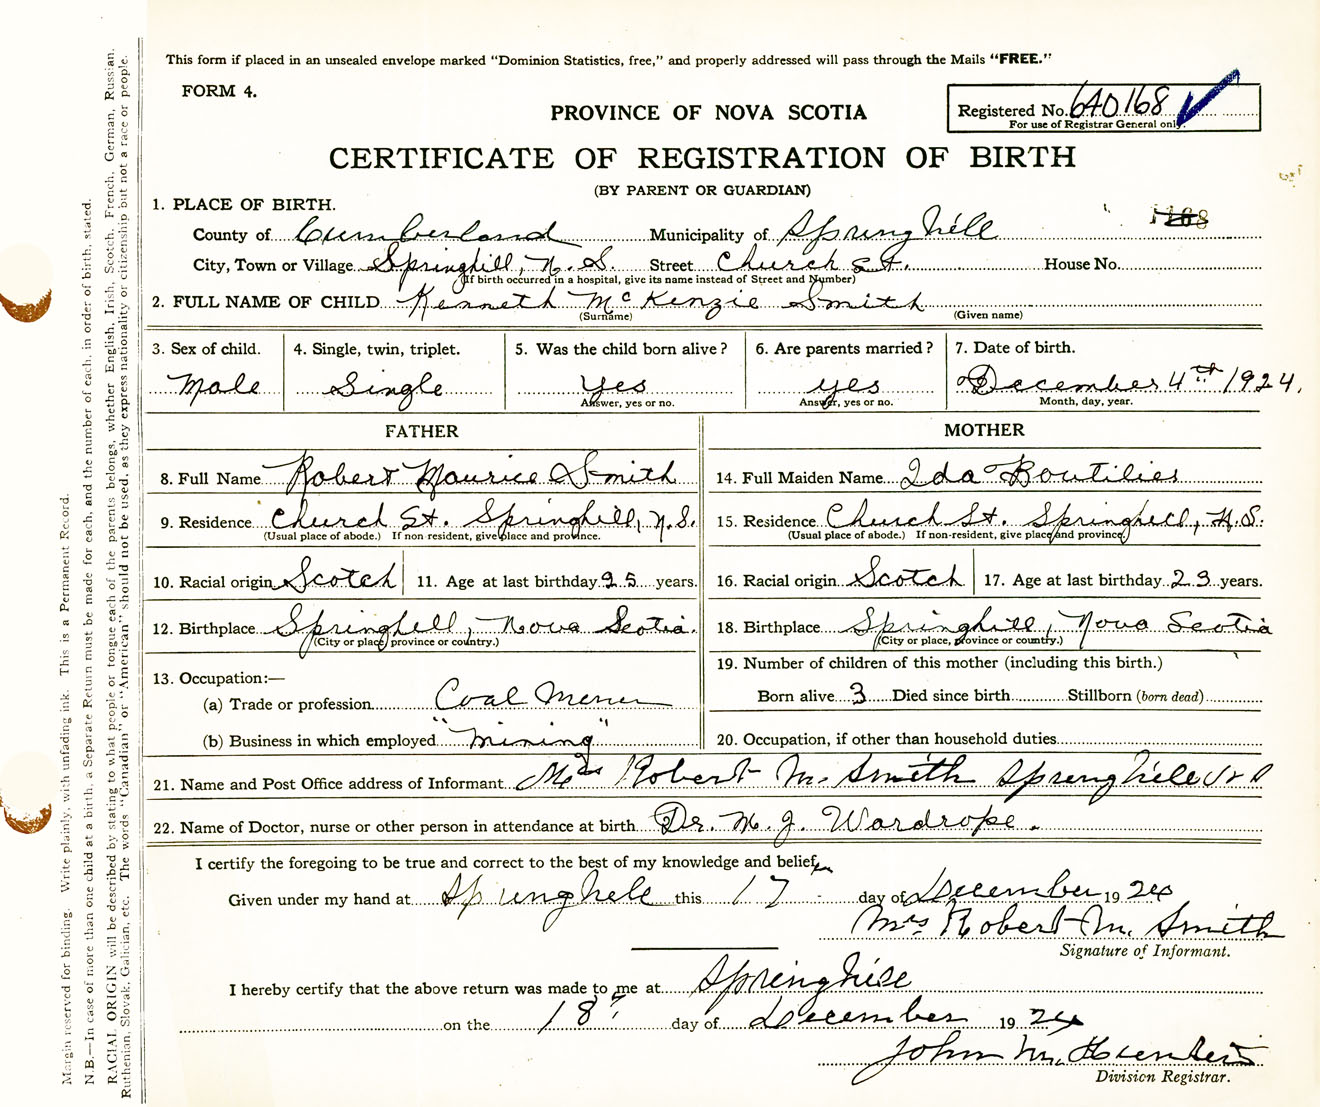 This form if placed in an unsealed envelope marked “Dominion Statistics, free,” and properly addressed will pass through the Mails “FREE.”
FORM 4.
PROVINCE OF NOVA SCOTIA
Registered No. 640168
For use of Registrar General only.
CERTIFICATE OF REGISTRATION OF BIRTH
(BY PARENT OR GUARDIAN)
1. PLACE OF BIRTH.
County of Cumberland Municipality of Springhill
City, Town or Village Springhill, N.S. Street Church St. House No.
(If birth occurred in a hospital, give its name instead of Street and Number)
2. FULL NAME OF CHILD Kenneth McKenzie Smith
(Surname) (Given name)
3. Sex of child. 4. Single, twin, triplet. 5. Was the child born alive? 6. Are parents married? 7. Date of birth.
Male Single Yes yes December 4th 1924.
Answer, yes or no. Answer, yes or no. Month, day, year.
FATHER MOTHER
8. Full Name Robert Maurice Smith 14. Full Maiden Name Ida Boutilier
9. Residence Church St. Springhill, N.S. 15. Residence Church St. Springhill, N.S.
(Usual place of abode.) If non-resident, give place and province. (Usual place of abode.) If non-resident, give place and province.)
10. Racial origin Scotch 11. Age at last birthday 25 years. 16. Racial origin Scotch 17. Age at last birthday 23 years.
12. Birthplace Springhill, Nova Scotia. 18. Birthplace Springhill, Nova Scotia
(City or place, province or country.) (City or place, province or country.)
13. Occupation:— 19. Number of children of this mother (including this birth.)
(a) Trade or profession Coal Miner Born alive 3 Died since birth Stillborn (born dead)
(b) Business in which employed "Mining" 20. Occupation, if other than household duties
21. Name and Post Office address of Informant Mrs Robert M. Smith Springhill N S
22. Name of Doctor, nurse or other person in attendance at birth Dr. M. J. Wardrope.
I certify the foregoing to be true and correct to the best of my knowledge and belief.
Given under my hand at Springhill this 17 day of December 1924
Mrs Robert M. Smith
Signature of Informant.
I hereby certify that the above return was made to me at Springhill
on the 18th day of December 1924
John M.
Division Registrar.
Margin reserved for binding. Write plainly, with unfading ink. This is a Permanent Record.
N.B.—In case of more than one child at a birth, a Separate Return must be made for each, and the number of each, in order of birth, stated.
RACIAL ORIGIN will be described by stating to what people or tongue each of the parents belongs, whether English, Irish, Scotch, French, German, Russian,
Ruthenian, Slovak, Galician, etc. The words “Canadian” or “American” should not be used, as they express nationality or citizenship but not a race or people.